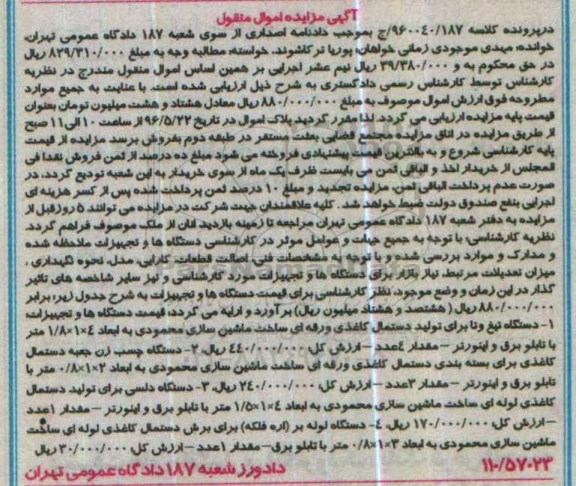 آگهی مزایده اموال منقول
درپرونده کلاسه ۹۶۰۰۴۰/۱۸۷/ج بموجب دادنامه اصداری از سوی شعبه ۱۸۷ دادگاه عمومی تهران،
خوانده: مهدی موجودی زمانی خواهان: پوریا ترکاشوند. خواسته: مطالبه وجه به مبلغ ۸۲۹/۳۱۰/۰۰۰ ریال
در حق محکوم به و ۳۹/۳۸۰/۰۰۰ ریال نیم عشر اجرایی بر همین اساس اموال منقول مندرج در نظریه
کارشناس توسط کارشناس رسمی دادگستری به شرح ذیل ارزیابی شده است. با عنایت به جمیع موارد
مطروحه فوق ارزش اموال موصوف به مبلغ ۸۸۰/۰۰۰/۰۰۰ ریال معادل هشتاد و هشت میلیون تومان بعنوان
قیمت پایه مزایده ارزیابی می گردد. لذا مقرر گردید پلاک اموال در تاریخ ۹۶/۵/۲۲ از ساعت ۱۰ الی ۱۱ صبح
از طریق مزایده در اتاق مزایده مجتمع قضایی بعثت مستقر در طبقه دوم بفروش برسد. مزایده از قیمت
پایه کارشناسی شروع و به بالاترین قیمت پیشنهادی فروخته می شود مبلغ ده درصد از ثمن فروش نقدا فی
المجلس از خریدار اخذ و الباقی ثمن می بایست ظرف یک ماه از سوی خریدار به این شعبه تودیع گردد، در
صورت عدم پرداخت الباقی ثمن، مزایده تجدید و مبلغ ۱۰ درصد ثمن پرداخت شده پس از کسر هزینه ای
اجرایی بنفع صندوق دولت ضبط خواهد شد. کلیه علاقمندان جهت شرکت در مزایده می توانند ۵ روز قبل از
مزایده به دفتر شعبه ۱۸۷ دادگاه عمومی تهران مراجعه تا زمینه بازدید آنان از ملک موصوف فراهم گردد.
نظریه کارشناسی: با توجه به جمیع جهات و عوامل موثر در کارشناسی دستگاه ها و تجهیزات ملاحظه شده
و مدارک و موارد بررسی شده و با توجه به مشخصات فنی، اصالت قطعات، کارایی، مدل، نحوه نگهداری،
میزان تعدیلات مرتبط، نیاز بازار، برای دستگاه ها و تجهیزات مورد کارشناسی و نیز سایر شاخصه های تاثیر
گذار در این زمان و وضع موجود، نظر کارشناسی برای قیمت دستگاه ها و تجهیزات به شرح جدول زیر، برابر
۸۸۰/۰۰۰/۰۰۰ ریال (هشتصد و هشتاد میلیون ریال) برآورد و ارایه می گردد، قیمت دستگاه ها و تجهیزات:
۱- دستگاه تیغ وتا برای تولید دستمال کاغذی ورقه ای ساخت ماشین سازی محمودی به ابعاد ۴×۱×۱/۸ متر
با تابلو برق و اینورتر – مقدار ۴عدد – ارزش کل، ۴۴۰/۰۰۰/۰۰۰ ریال، ۲- دستگاه چسب زن جعبه دستمال
کاغذی برای بسته بندی دستمال کاغذی ورقه ای ساخت ماشین سازی محمودی به ابعاد ۲×۱×۰/۸ متر با
تابلو برق و اینورتر – مقدار ۳عدد – ارزش کل، ۲۴۰/۰۰۰/۰۰۰ ریال، ۳- دستگاه دلسی برای تولید دستمال
کاغذی لوله ای ساخت ماشین سازی محمودی به ابعاد ۴×۱×۱/۵ متر با تابلو برق و اینورتر – مقدار ۱عدد
– ارزش کل، ۱۷۰/۰۰۰/۰۰۰ ریال، ۴- دستگاه لوله بر (اره فلکه) برای برش دستمال کاغذی لوله ای ساخت
ماشین سازی محمودی به ابعاد ۳×۱×۰/۸ متر با تابلو برق– مقدار ۱عدد – ارزش کل، ۳۰/۰۰۰/۰۰۰ ریال
۱۱۰/۵۷۰۲۳ دادورز شعبه ۱۸۷ دادگاه عمومی تهران